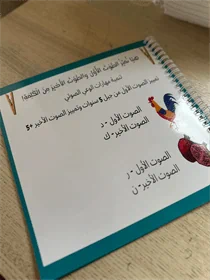 كيفَ نُمَيِّز الصَّوْتَ الأوَّل والصَّوْتَ الأخير مِنَ الكَلِمَة؟
تنمية مهارات الوعي الصوتي
تمييز الصوت الأول من جيل 5 سنوات وتمييز الصوت الأخير +5
الصوت الأول - د
الصوت الأخير - ك
الصوت الأول - ر
الصوت الأخير - ن